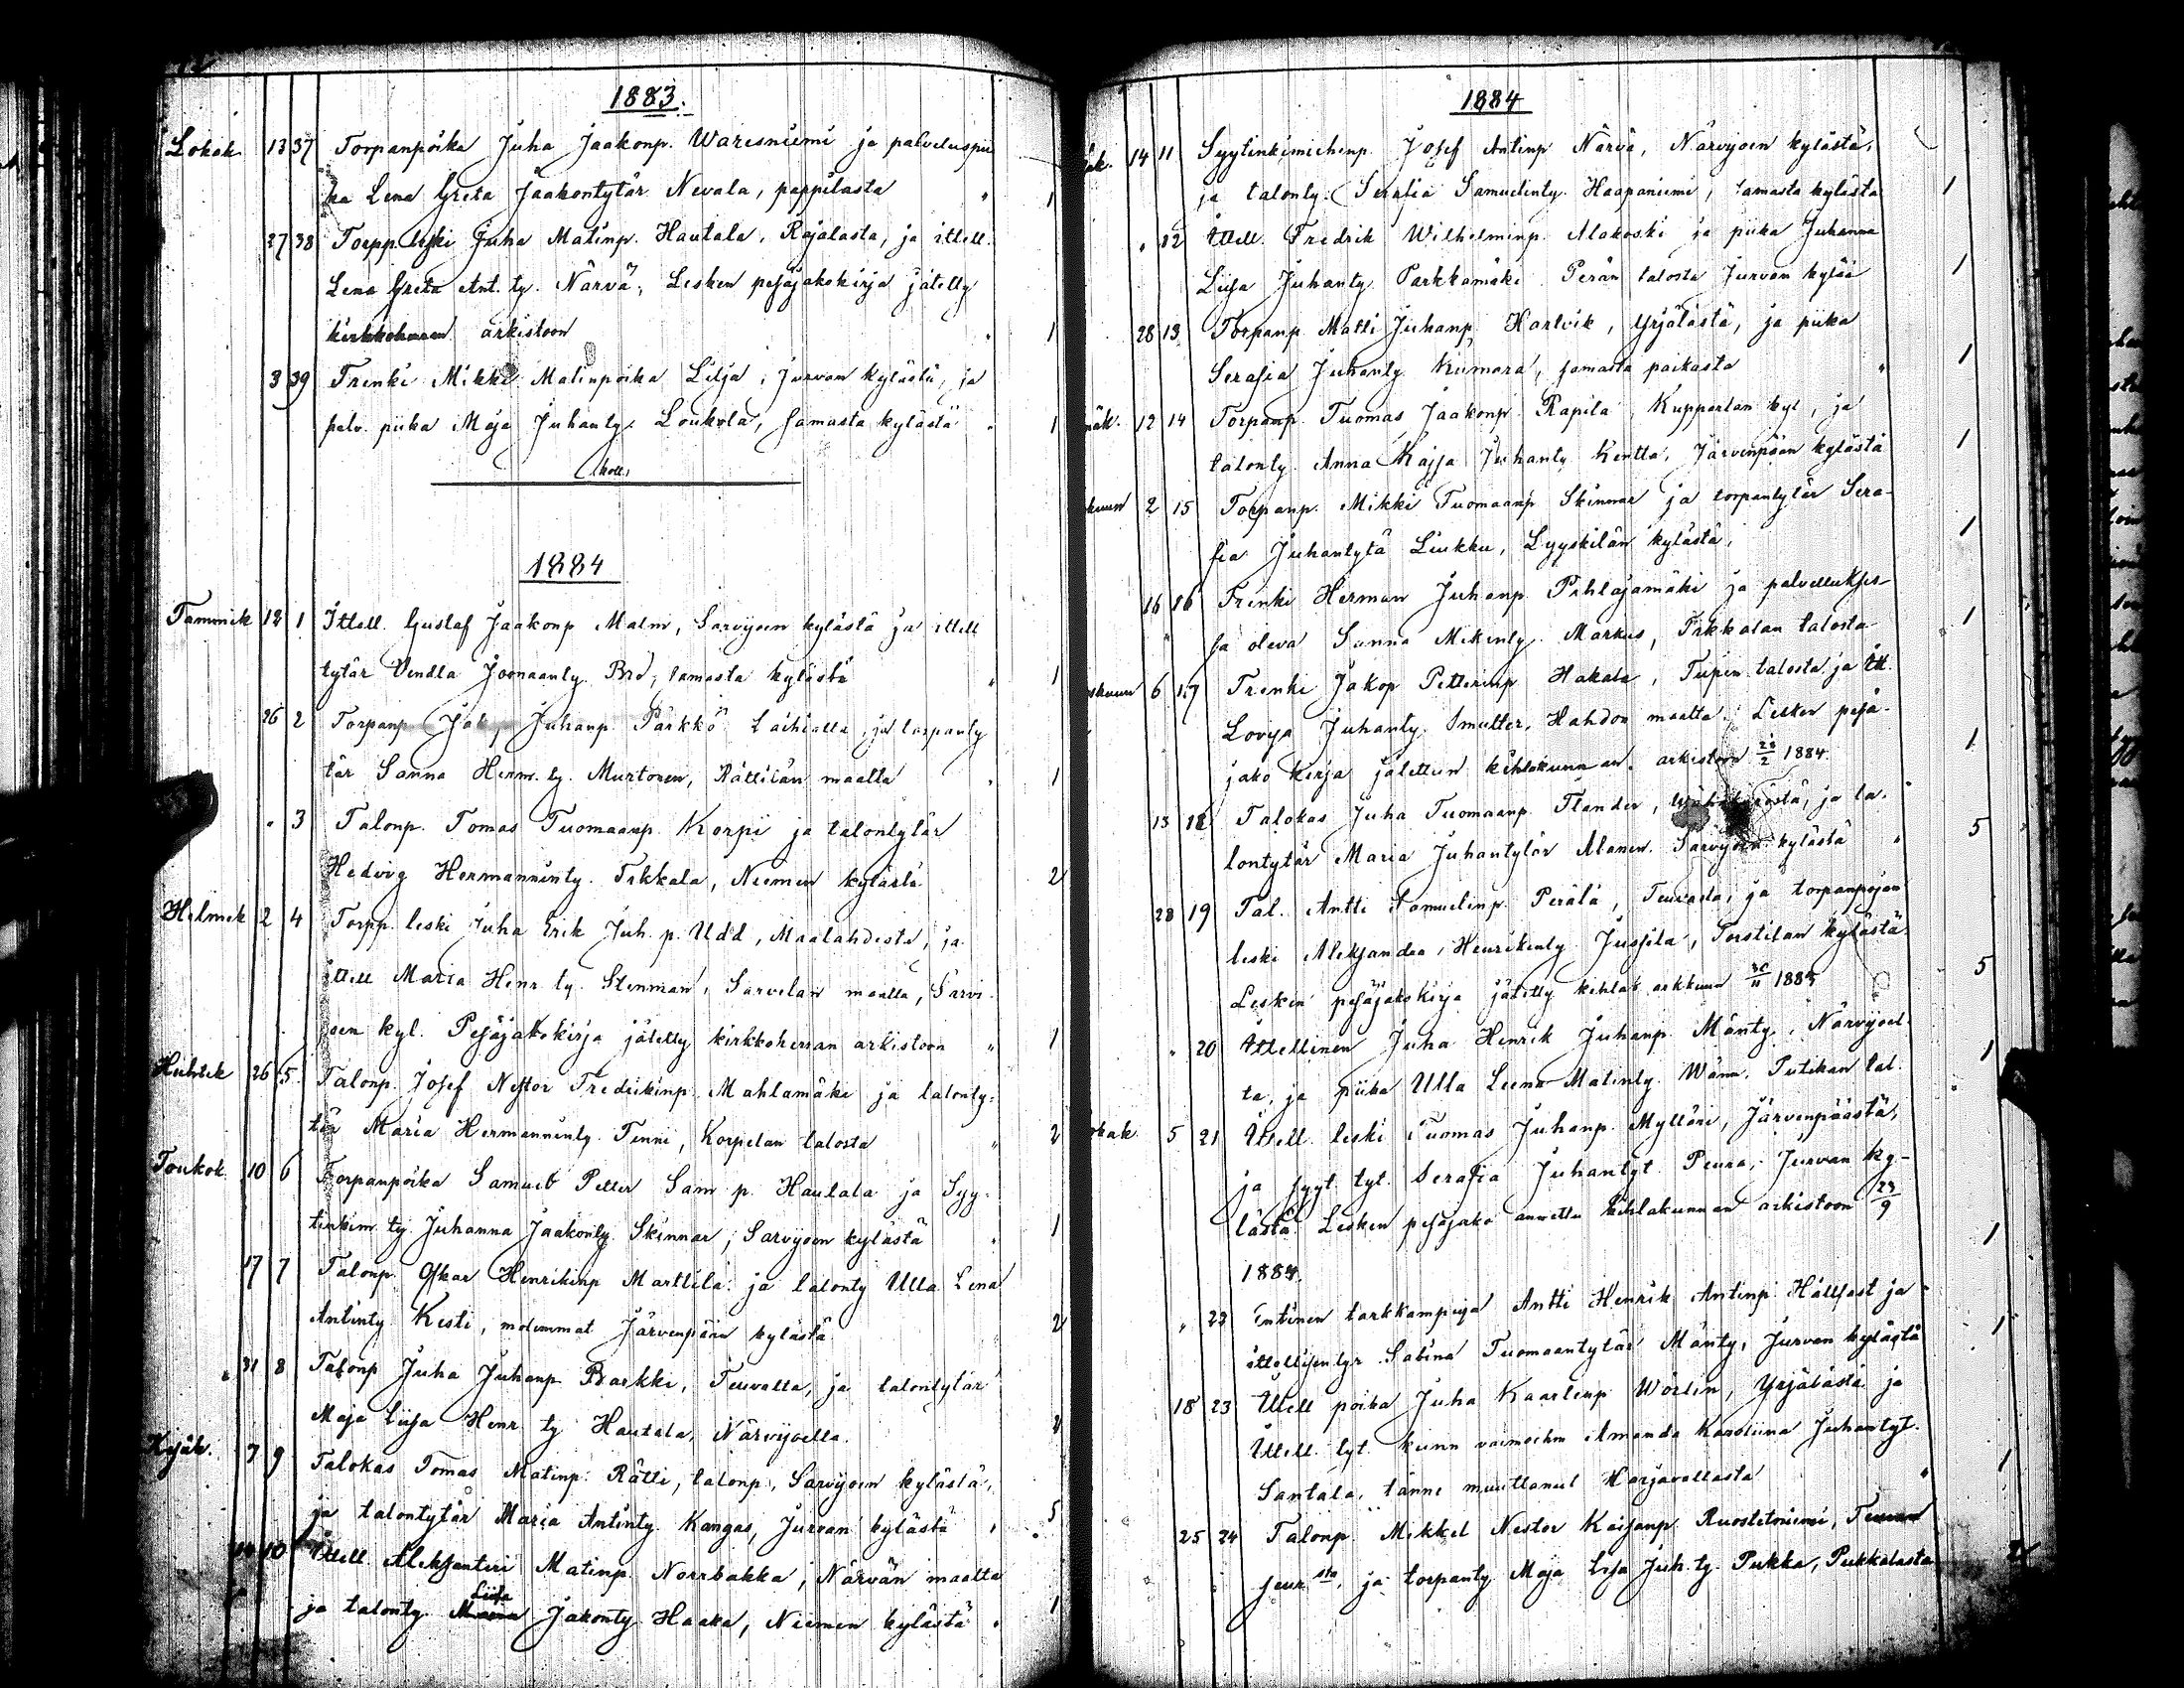 1883.
Lokak. 13 37 Torpanpoika Juha Jaakonp. Waresniemi ja palveluspii
ka Lena Greta Jaakontytär Nevala, pappilasta " 1
27 38 Torpp. leski Juha Matinp. Hautala, Rajalasta, ja ittell.
Lena Greta Ant. ty. Närvä, Lesken pesäjakokirja jätetty
kirkkoherran arkistoon " 1
3 39 Trenki Mikki Matinpoika Lilja, Jurvan kylästä, ja
palv. piika Maja Juhanty. Loukola, samasta kylästä " 1
1884
Tammik 12 1 Ittell. Gustaf Jaakonp Malm, Sarvijoen kylästä ja ittell
tytär Vendla Joonaanty. Bro, samasta kylästä " 1
26 2 Torpanp Juhanp. Parkko Laihialla, ja torpanty
tär Sanna Herm. ty. Murtonen, Rättilän maalta " 1
" 3 Talonp. Tomas Tuomaanp. Korpi ja talontytär
Hedvig Hermanninty. Tikkala, Niemen kylästä 2
Helmik 2 4 Torpp. leski Juha Erik Juh. p. Udd, Maalahdesta, ja
ittell Maria Henr ty. Stenman, Sarvelan maalta, Sarvi
joen kyl. Pesäjakokirja jätetty kirkkoherran arkistoon " 1
Huhtik 26 5 Talonp. Josef Nestor Fredrikinp. Mahlamäki ja talonty-
tär Maria Hermanninty. Tinni, Korpelan talosta " 2
Toukok. 10 6 Torpanpoika Samuel Petter Sam p. Hautala ja Syy-
tinkim. ty. Juhanna Jaakonty. Skinnar, Sarvijoen kylästä " 1
17 7 Talonp. Oskar Henrikinp Marttila ja talonty Ulla Lena
Antinty Kesti, molemmat Järvenpään kylästä 2
" 31 8 Talonp Juha Juhanp Barkki, Teuvalta, ja talontytär
Maja Liisa Henr ty Hautala, Närvijoella. 2
Kesäk. 7 9 Talokas Tomas Matinp. Rätti, talonp, Sarvijoen kylästä,
ja talontytär Maria Antinty. Kangas, Jurvan kylästä " 5
14 10 Ittell. Aleksanteri Matinp. Norrbakka, Närvän maalta
Liisa
ja talonty. Jakonty. Haaka, Niemen kylästä " 1
1884
14 11 Syytinkimiehenp. Josef Antinp Närvä, Närvijoen kylästä,
ja talonty. Serafia Samuelinty. Haapaniemi, samasta kylästä 1
" 12 Ittell. Fredrik Wilhelminp. Alakoski ja piika Juhanna
Liisa Juhanty. Parkkamäki Perän talosta Jurvan kylää 1
28 13 Torpanp. Matti Juhanp, Hartvik, Yrjälästä, ja piika
Serafia Juhanty. Kiimara, samasta paikasta " 1
12 14 Torpanp. Tuomas Jaakonp. Rapila, Kupparlan kyl, ja
talonty. Anna Kajsa Juhanty. Kentta, Järvenpään kylästä 1
2 15 Torpanp. Mikki Tuomaanp. Skinnar ja torpantytär Sera-
fia Juhantytä Liukku, Lyyskilän kylästä, 1
16 16 Trenki Herman Juhanp. Pihlajamäki ja palvelukses-
sa oleva Sanna Mikinty. Markus, Tikkalan talosta 1
6 17 Trenki Jakop Petterinp Hakala, Tupin talosta ja itt.
Lovsa Juhanty. Smutter, Hahdon maalta. Lesken pesä-
jako kirja jätettiin kihlakunnan arkistoon 28/2 1884. 1
13 18 Talokas Juha Tuomaanp. Flander, ja ta-
lontytär Maria Juhantytär Alanen. Sarvijoen kylästä " 5
28 19 Tal. Antti Samuelinp. Perälä, Teuvasta, ja torpanpojan
leski Aleksandra Henrikinty Jussila, Torstilan kylästä
Lesken pesäjakokirja jätetty kihlak arkkuun 30/11 1883 5
" 20 Ittellinen Juha Henrik Juhanp. Mänty, Närvijoel-
ta, ja piika Ulla Leena Matinty. Wänn, Putikan tal. 1
5 21 Ittell. leski Tuomas Juhanp. Mylläri, Järvenpäästä,
ja syyt. tyt. Serafia Juhantyt. Peura, Jurvan ky-
lästä. Lesken pesäjako annettu kihlakunnan arkistoon 23/9
1884. 1
" 22 Entinen tarkkampuja Antti Henrik Antinp. Hällfast ja
ittellisentyr Sabina Tuomaantytär Mänty, Jurvan kylästä 1
18 23 Ittell poika Juha Kaarlenp Wörlin, Yrjälästä ja
Ittell. tyt. kunn vaimoihm Amanda Karoliina Juhantyt.
Santala, tänne muuttanut Harjavallasta " 1
25 24 Talonp. Mikkel Nestor Kaisanp. Ruostetoniemi, Teuvan
seur sta, ja torpanty Maja Lisa Juh. ty. Pukka, Pukkalasta 2